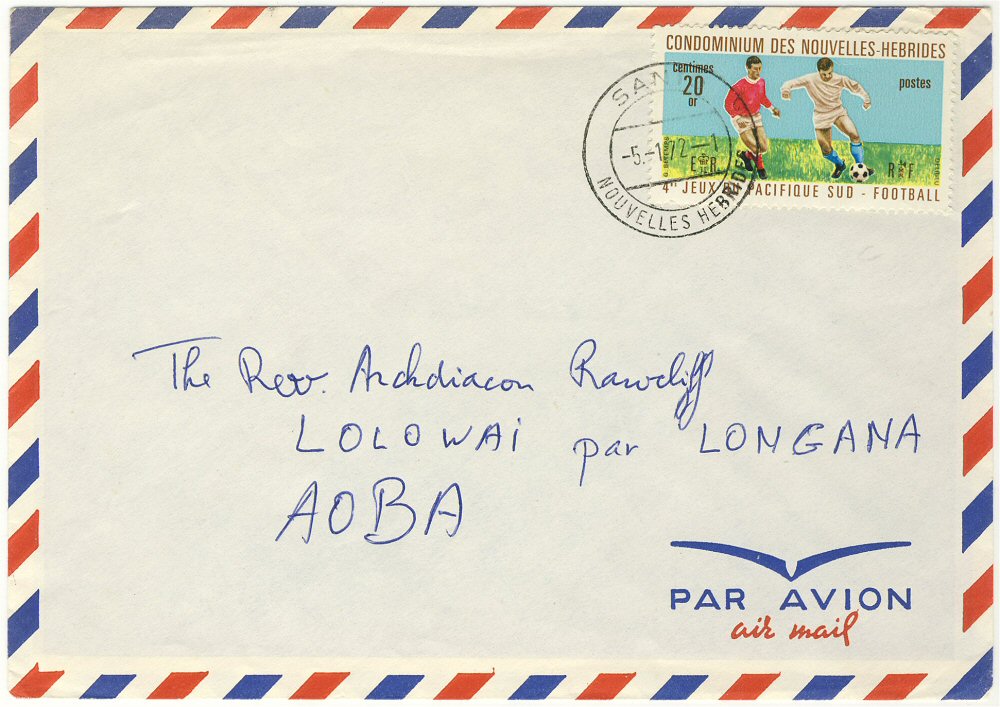 CONDOMINIUM DES NOUVELLES-HEBRIDES
centimes
20
or
postes
E R
R F
4es JEUX DU PACIFIQUE SUD - FOOTBALL
SANTO
-5.-1.72-1
NOUVELLES HEBRIDES
The Rev. Archdiacon Rawcliff
LOLOWAI par LONGANA
AOBA
PAR AVION
air mail